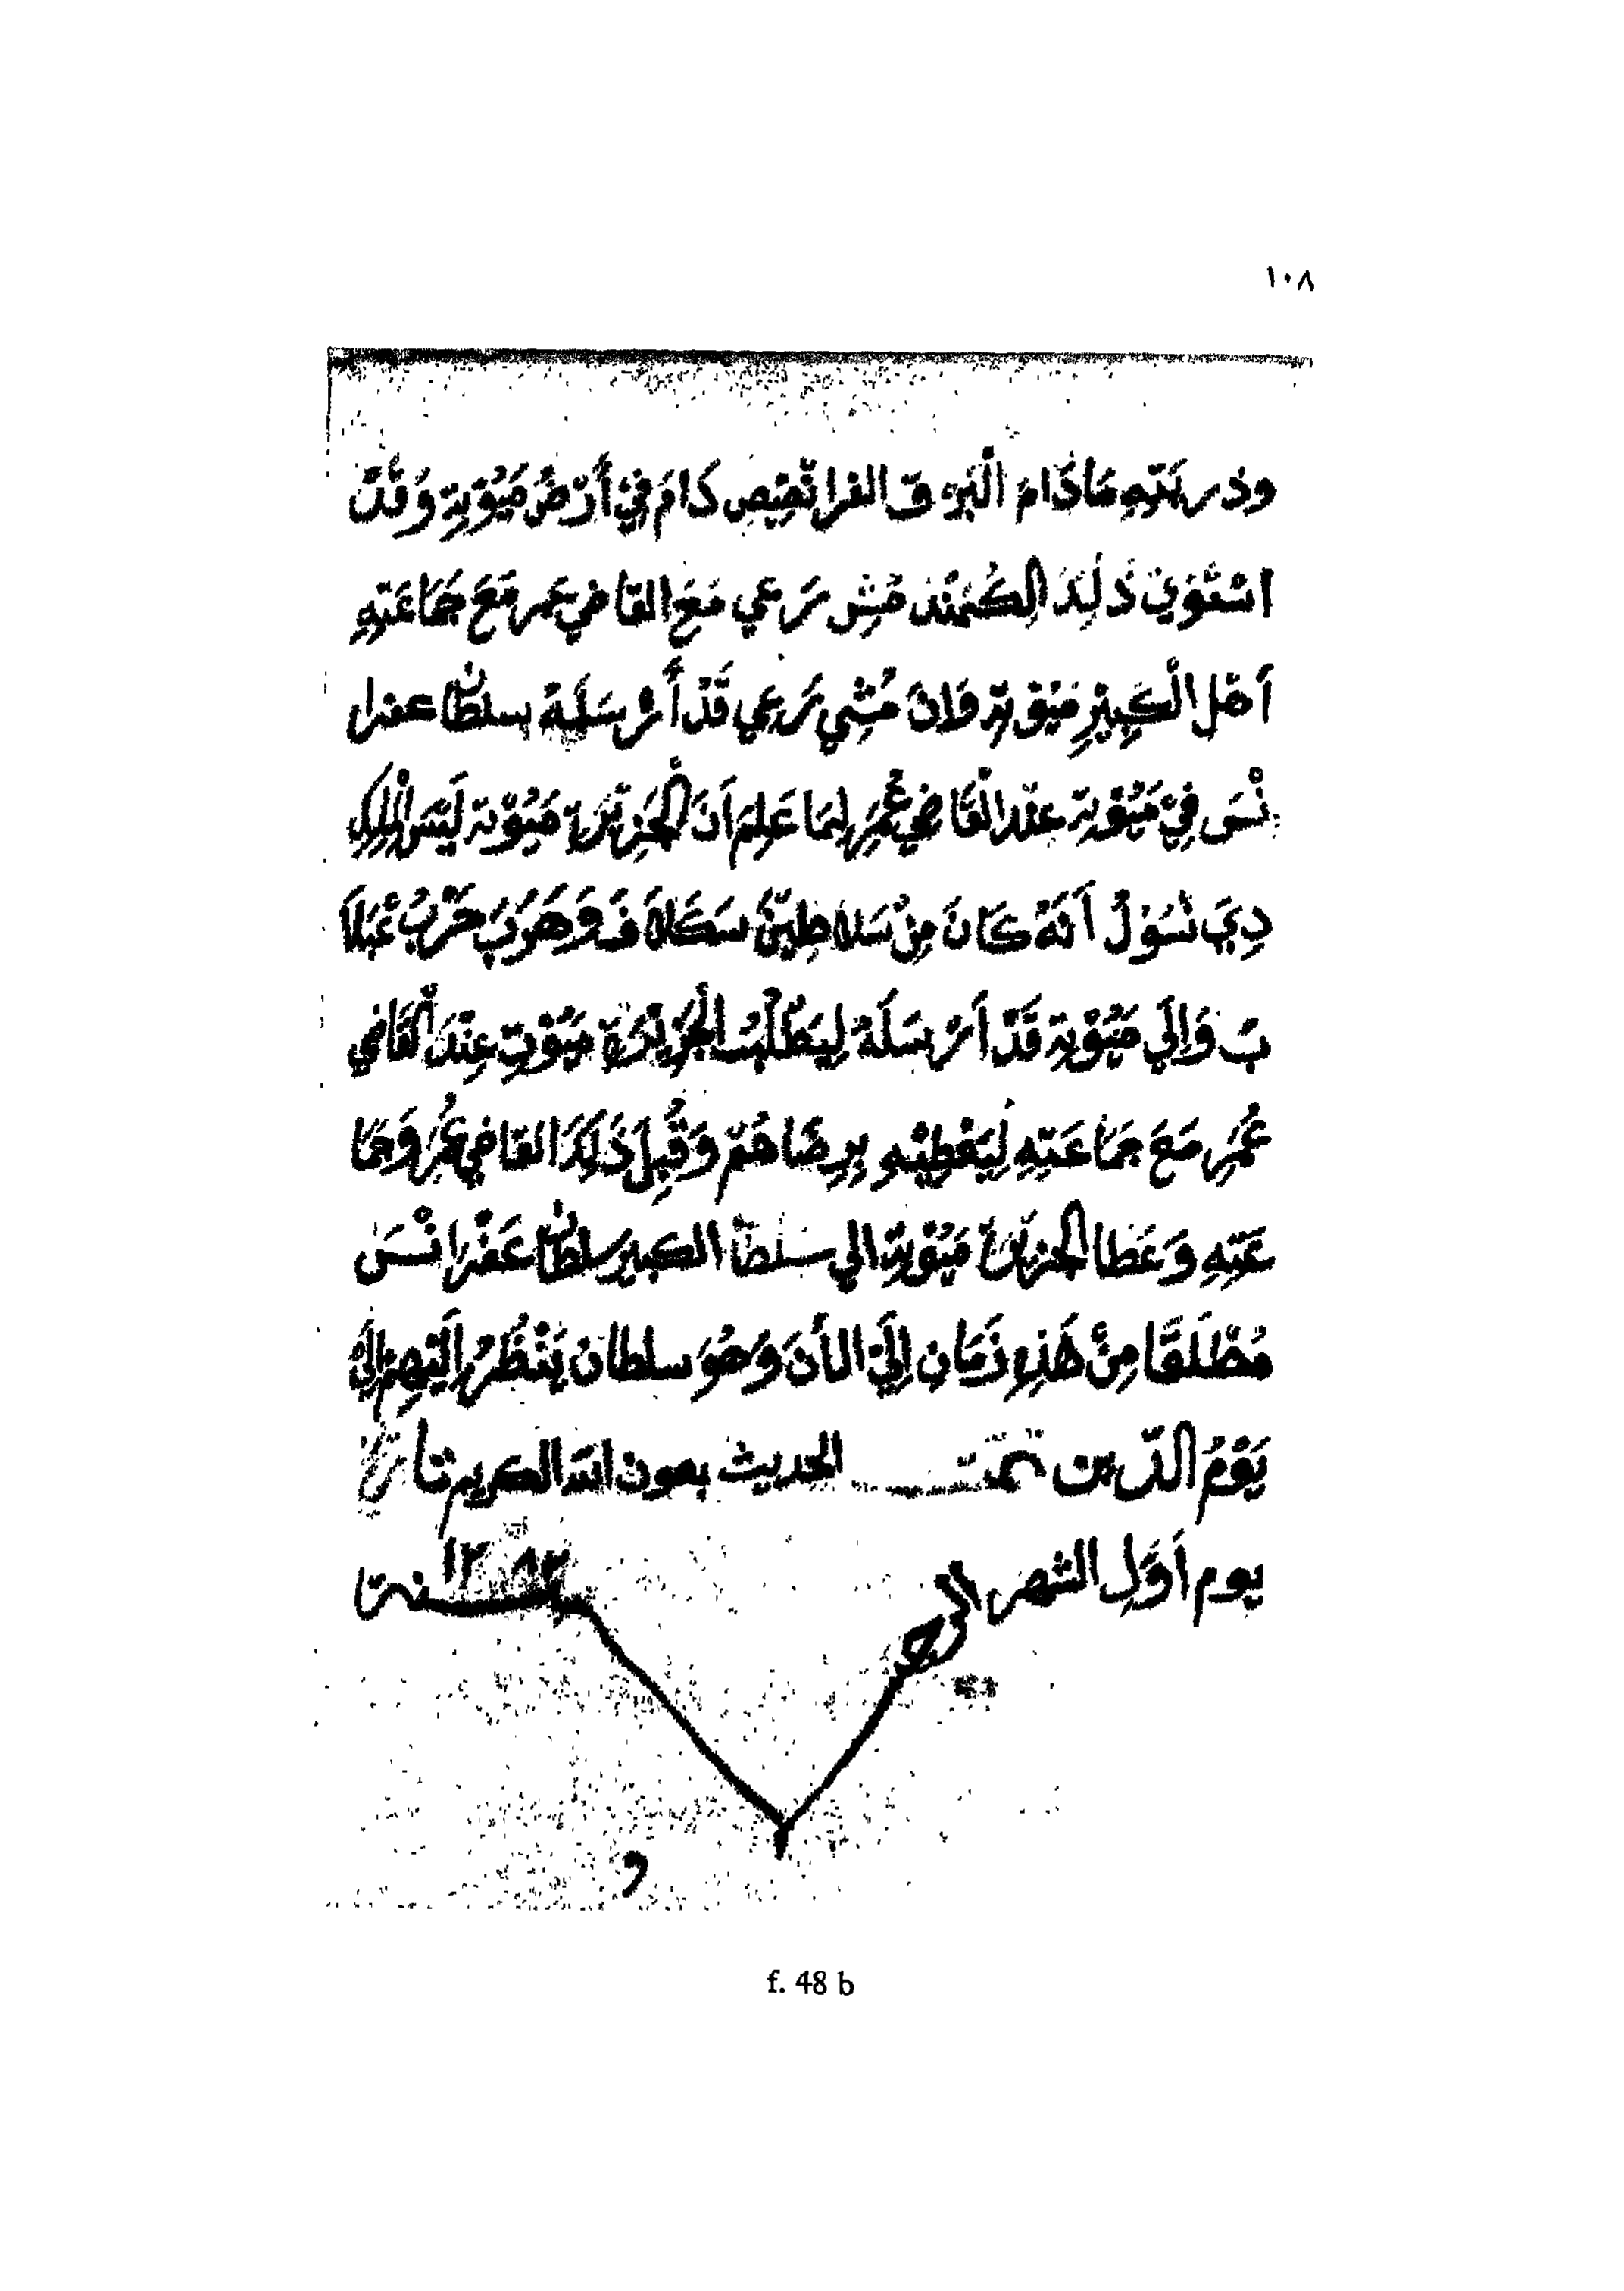 ١٠٨
وذريته مَا دَامَ الْبَرْوق الفرانْصِيص دَامَ فِيْ أَرْضُ مَيُوْتِة وَقَدْ
اسْتَوَيْ ذَلِكَ الكُمَنْدَ مُشِ رَعِي مَعَ القاضي عمر مَعَ جَمَاعَتِهِ
اَهْل الْكَبِيْرِ مَيُوْتِة وَاِنَ مُشِي رَعِي قَدْ أَرْسَلَهُ سلطان عفرا
نْسَ فِيْ مَيُوْتِة عِنْد الْقَاضِيْ عُمَرِ لِمَا عَلِمَ اَنَ الْجَزِيْرَة مَيُوْتة لَيْسَ الْمِلِكِ
دِيَ نَسُوْلُ اَنَهُ كَانَ مِنْ سَلاطِيْنَ سَكَلاَفَ وَهَرَبَ حَرْبُ غَلَا
بَ وَاِلَي مَيُوْتِة قَدْ اَرْسَلَهُ لِيَطْلُبُ الْجَزِيْرَة مَيُوْتِ عِنْدَ الْقَاضي
عُمَرِ مَعَ جَمَاعَتِهِ لِيَعْطِيْهِ بِرِضَاهُمْ وَقَبِلَ ذَلِكَ القاضِي عُمَرُ وَجَما
عَتِهِ وَعَطَا الجزيرة مَيُوْتِة الي سَلطان الكبير سلطان عَفْرَانْسَ
مُطْلَقًا مِنْ هَذِهِ زَمَانِ اِلَيْ الأنَ وَهُوَ سلطان يَنْظُرُ اِلَيْهِمْ اِلَيْ
يَوْمُ الدّين تمّت الحديث بعون الله الكريم تاريخ
يوم اَوَّل الشهر الرجب سنة ١٢٨٢
و
f. 48 b